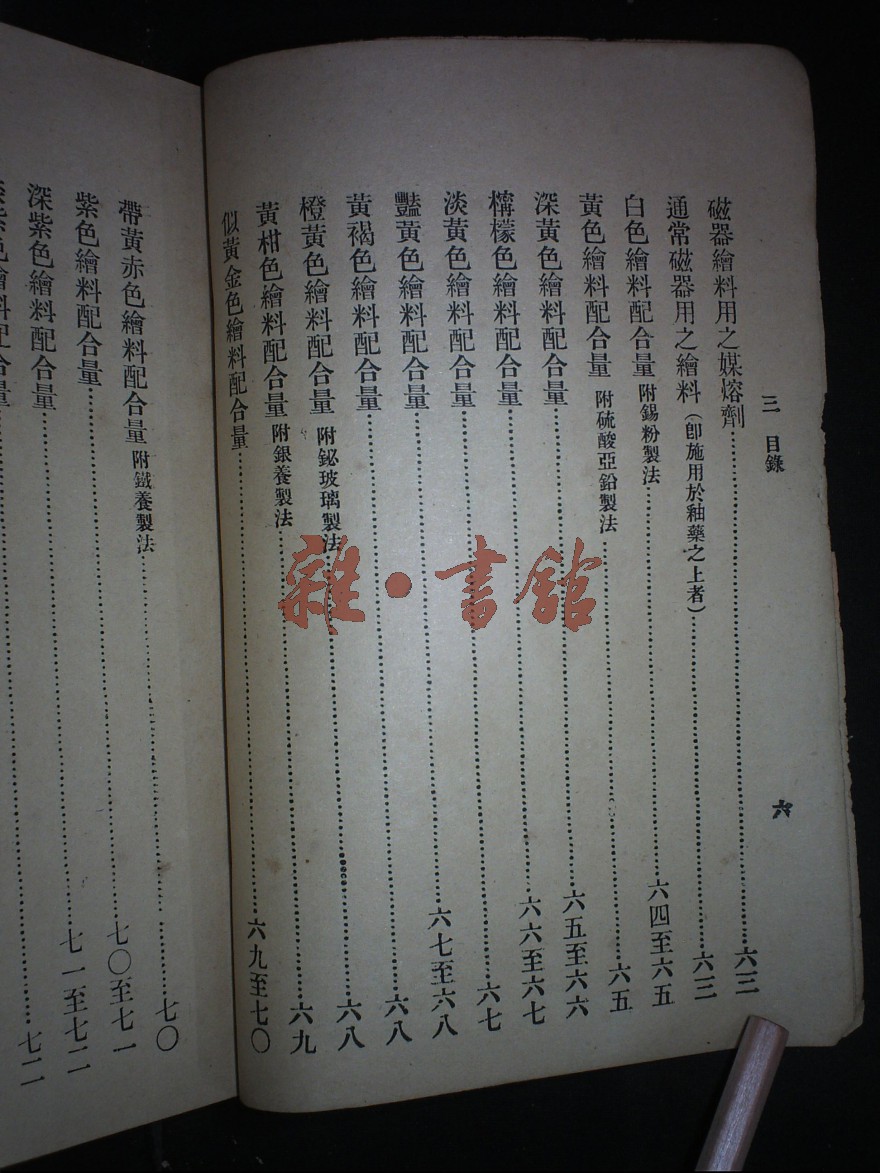 三 目錄 六
磁器繪料用之媒熔劑……六三
通常磁器用之繪料(即施用於釉藥之上者)……六三
白色繪料配合量 附錫粉製法……六四至六五
黃色繪料配合量 附硫酸亞鉛製法……六五
深黃色繪料配合量……六五至六六
檸檬色繪料配合量……六六至六七
淡黃色繪料配合量……六七
豔黃色繪料配合量……六七至六八
黃褐色繪料配合量……六八
橙黃色繪料配合量 附鉍玻璃製法……六八
黃柑色繪料配合量 附銀養製法……六九
似黃金色繪料配合量……六九至七〇
帶黃赤色繪料配合量 附鐵養製法……七〇
紫色繪料配合量……七〇至七一
深紫色繪料配合量……七一至七二
紫色繪料配合量……七二
雜·書館